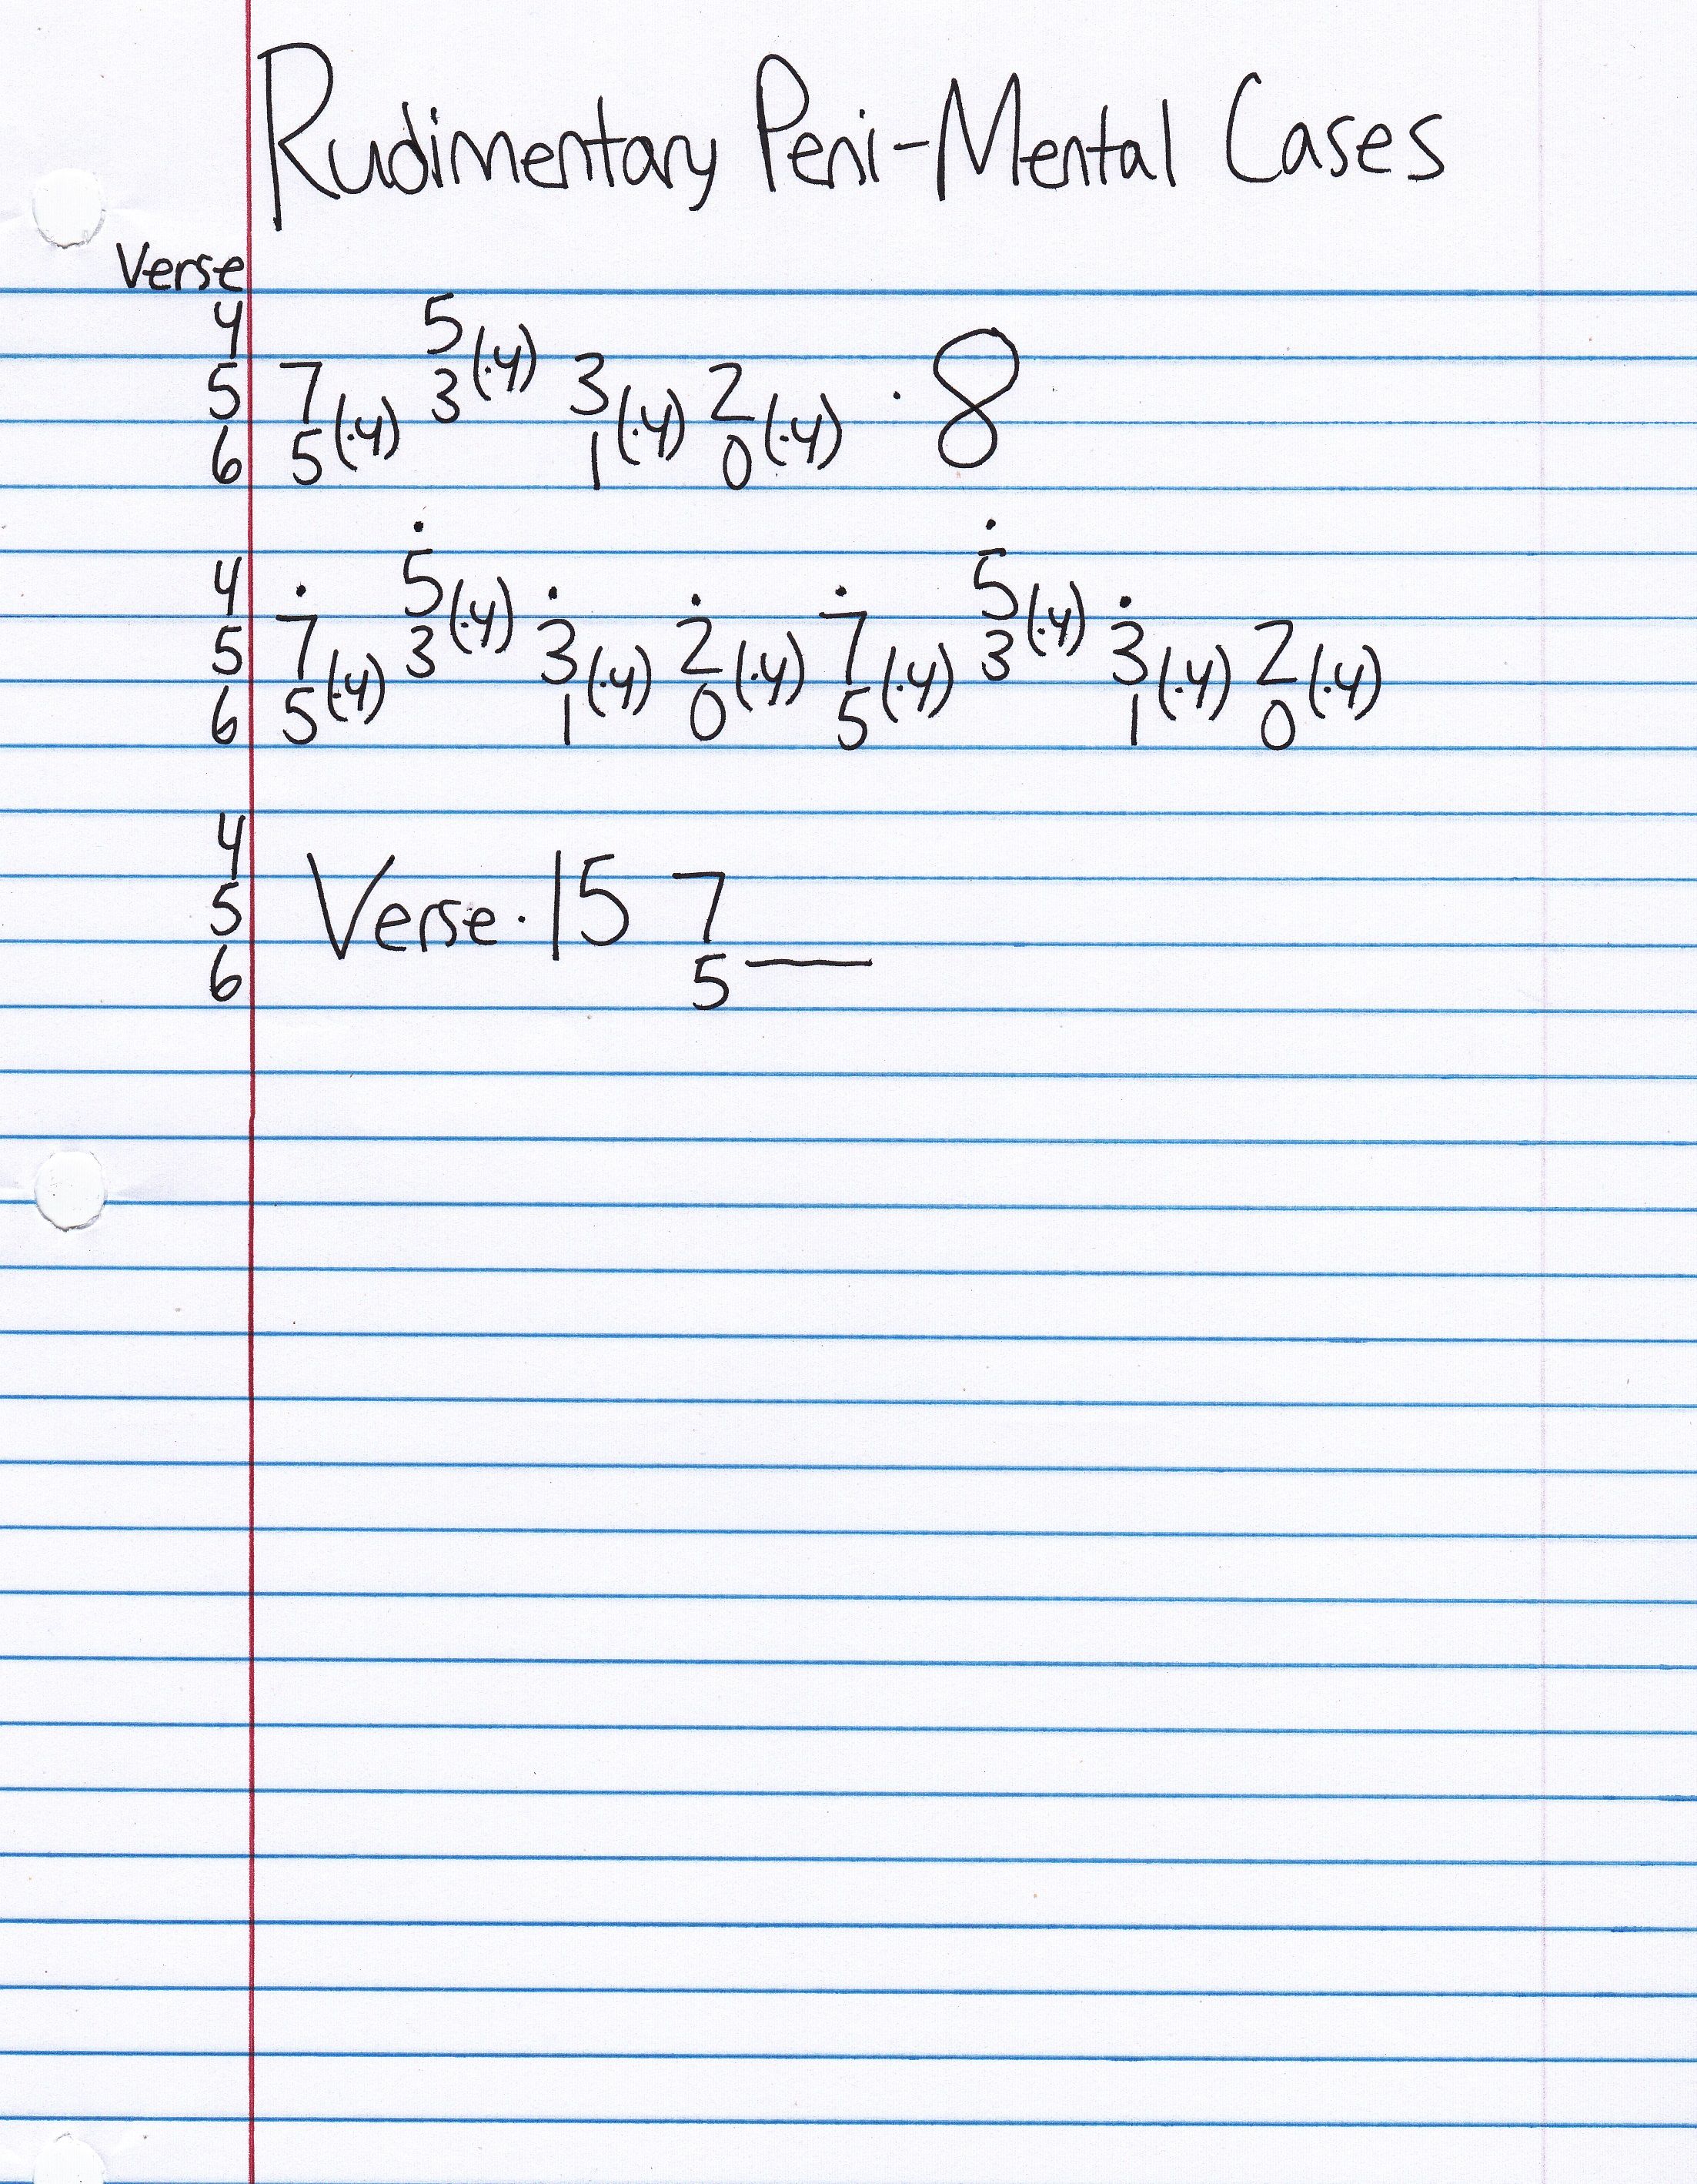 Rudimentary Peni-Mental Cases
Verse
4 5
5 7 (·4) 3 (·4) 3 (·4) 2 (·4) ·8
6 5 1 0
4 5̇ 5̇
5 7̇ (·4) 3 (·4) 3̇ (·4) 2̇ (·4) 7̇ (·4) 3 (·4) 3̇ (·4) 2 (·4)
6 5 1 0 5 1 0
4
5 Verse·15 7
6 5—